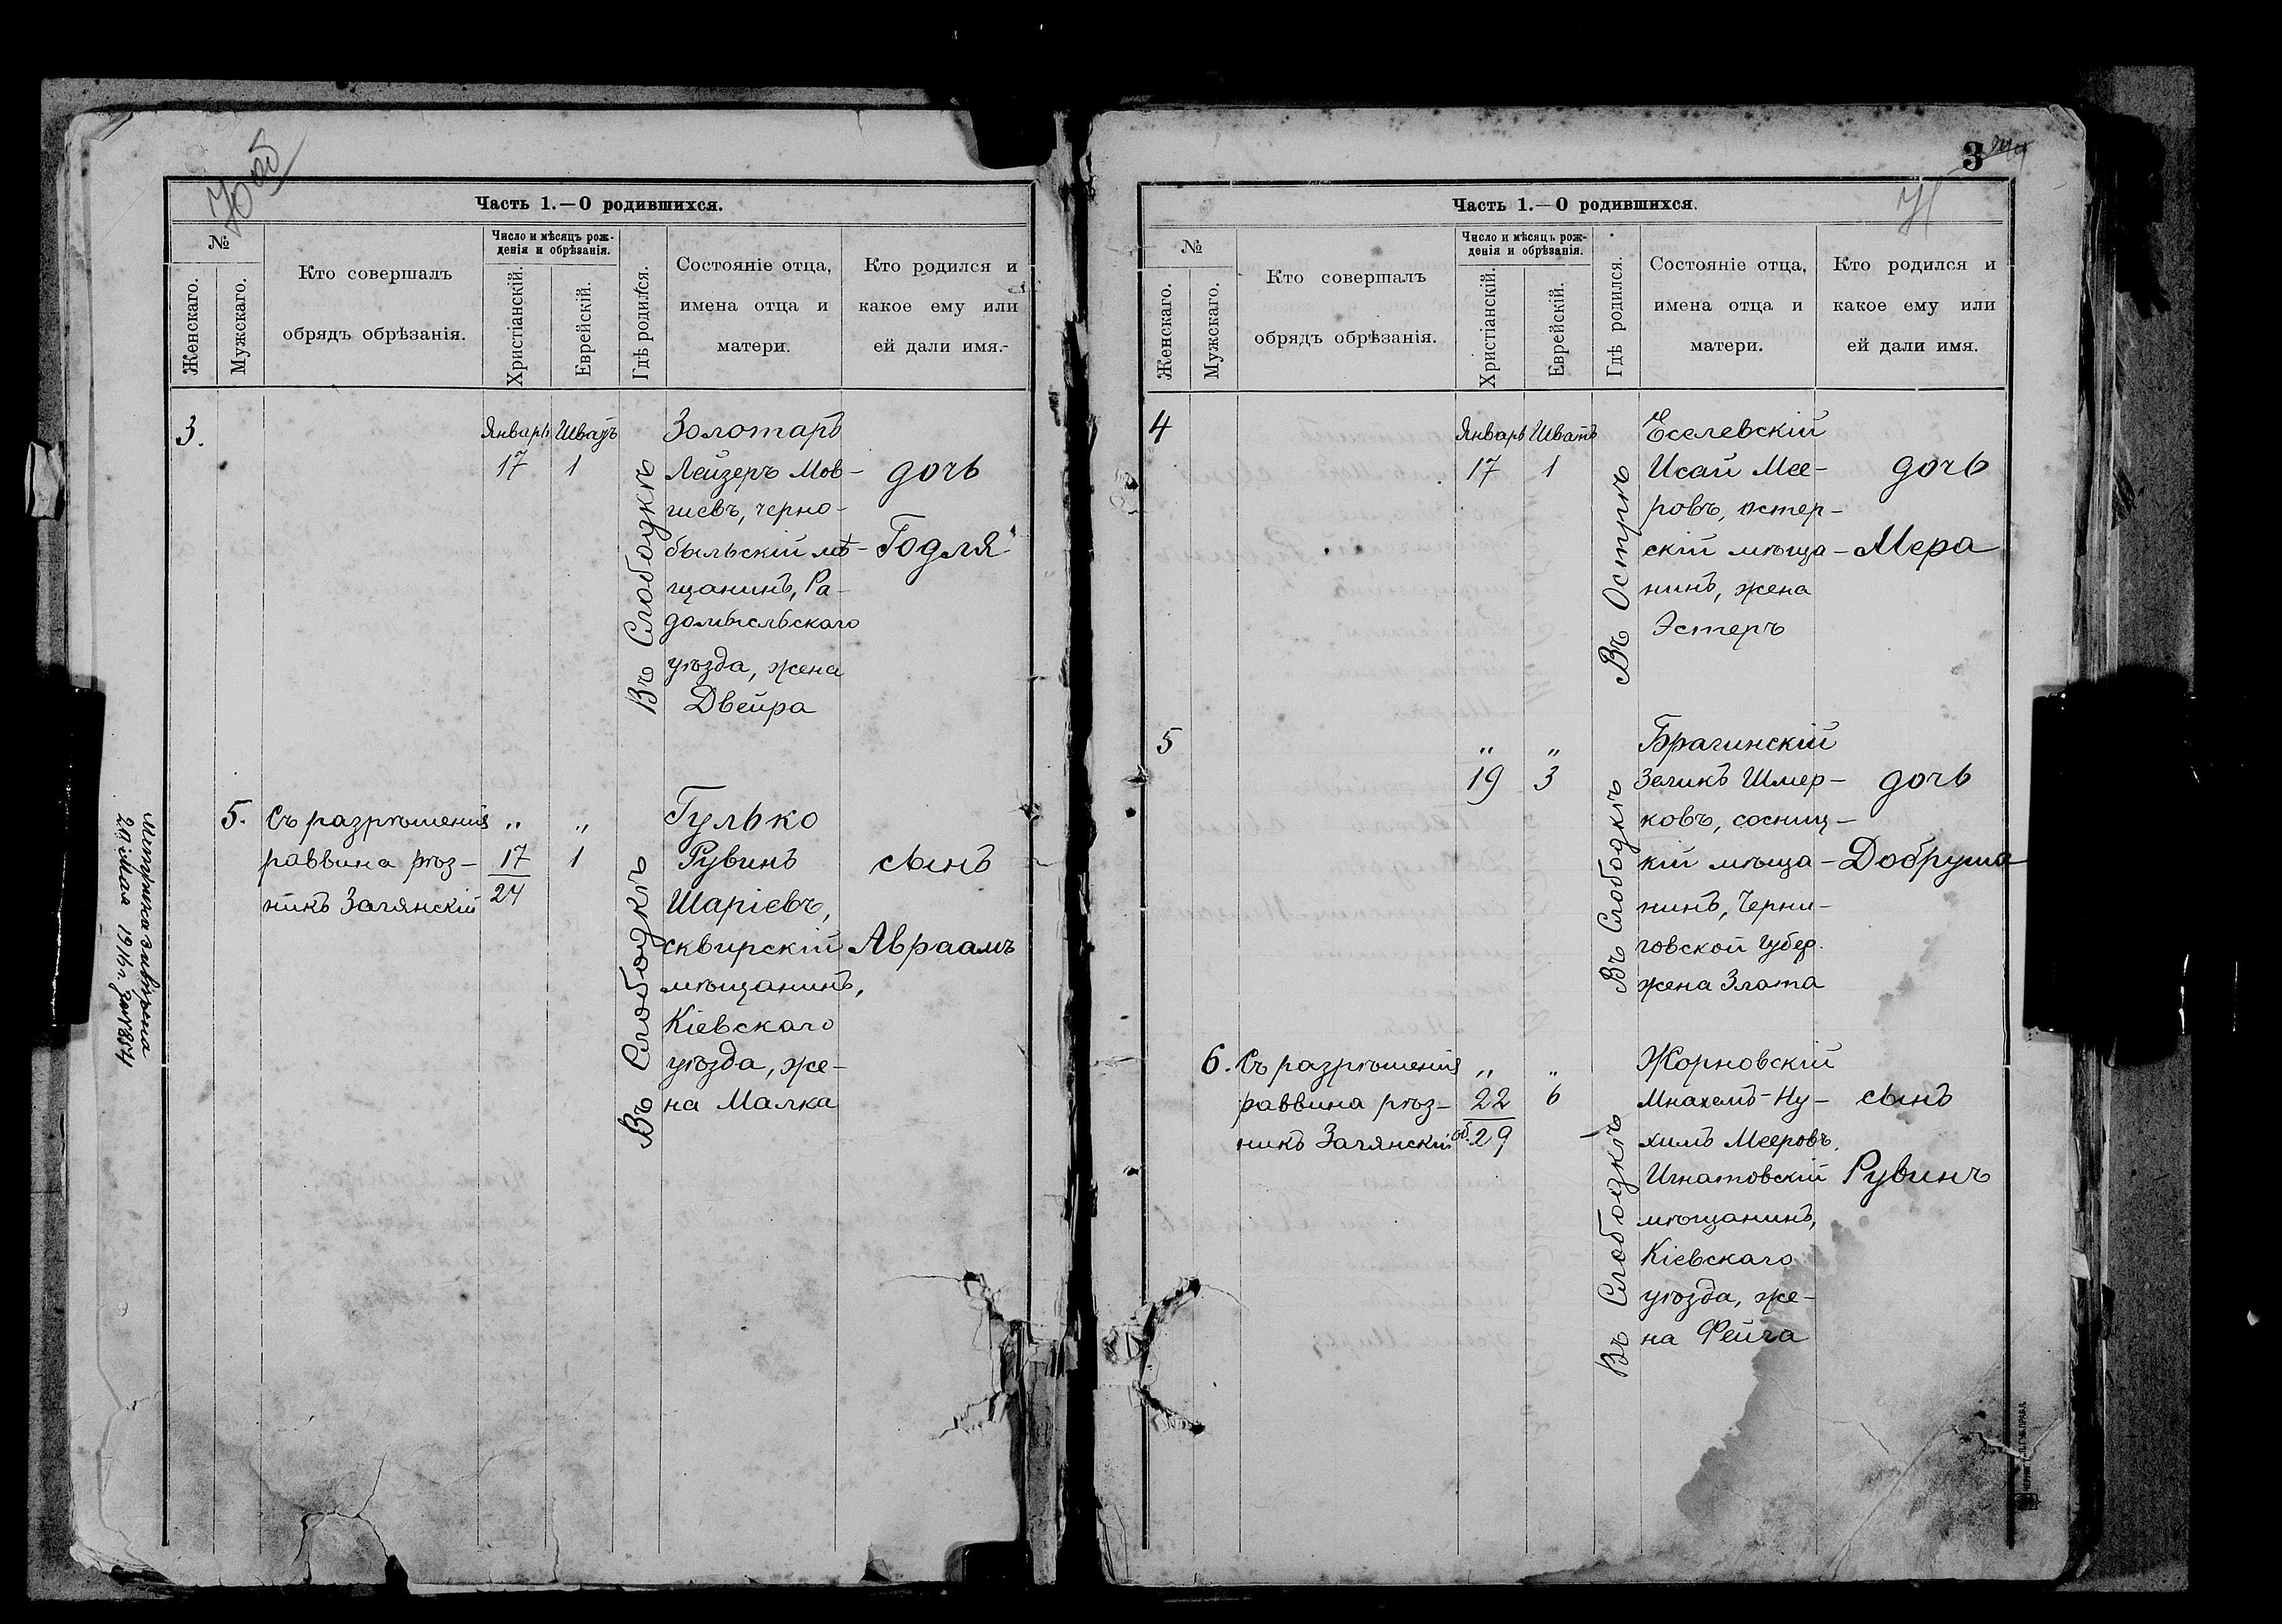 70 об
Часть 1.—О родившихся.
№
Женскаго.
Мужскаго.
Кто совершалъ
обрядъ обрѣзанія.
Число и мѣсяцъ рож-
денія и обрѣзанія.
Христіанскій.
Еврейскій.
Гдѣ родился.
Состояніе отца,
имена отца и
матери.
Кто родился и
какое ему или
ей дали имя.
3.
Январь Шватъ
17 1
Въ Слободкѣ
Золотарь
Лейзеръ Мов-
шевъ, черно-
быльскій мѣ-
щанинъ, Ра-
домысльскаго
уѣзда, жена
Двейра
дочь
Годля
5.
Съ разрѣшенія
раввина рѣз-
никъ Загянскій
„ „
17 1
24
Въ Слободкѣ
Гулько
Рувинъ
Шаріевъ,
сквирскій
мѣщанинъ,
Кіевскаго
уѣзда, же-
на Малка
сынъ
Авраамъ
Метрика
20 Мая 1916 г.
3
71
Часть 1.—О родившихся.
№
Женскаго.
Мужскаго.
Кто совершалъ
обрядъ обрѣзанія.
Число и мѣсяцъ рож-
денія и обрѣзанія.
Христіанскій.
Еврейскій.
Гдѣ родился.
Состояніе отца,
имена отца и
матери.
Кто родился и
какое ему или
ей дали имя.
4
Январь Шватъ
17 1
Въ Острѣ
Еселевскій
Исай Мее-
ровъ, остер-
скій мѣща-
нинъ, жена
Эстеръ
дочь
Мера
5
„ „
19 3
Въ Слободкѣ
Брагинскій
Зеликъ Шмер-
ковъ, сосниц-
кій мѣща-
нинъ, Черни-
говской губер.
жена Злата
дочь
Добруша
6.
Съ разрѣшенія
раввина рѣз-
никъ Загянскій
„ „
22 6
об. 29
Въ Слободкѣ
Жорновскій
Мнахемъ-Ну-
химъ Мееровъ,
Игнатовскій
мѣщанинъ,
Кіевскаго
уѣзда, же-
на Фейга
сынъ
Рувинъ